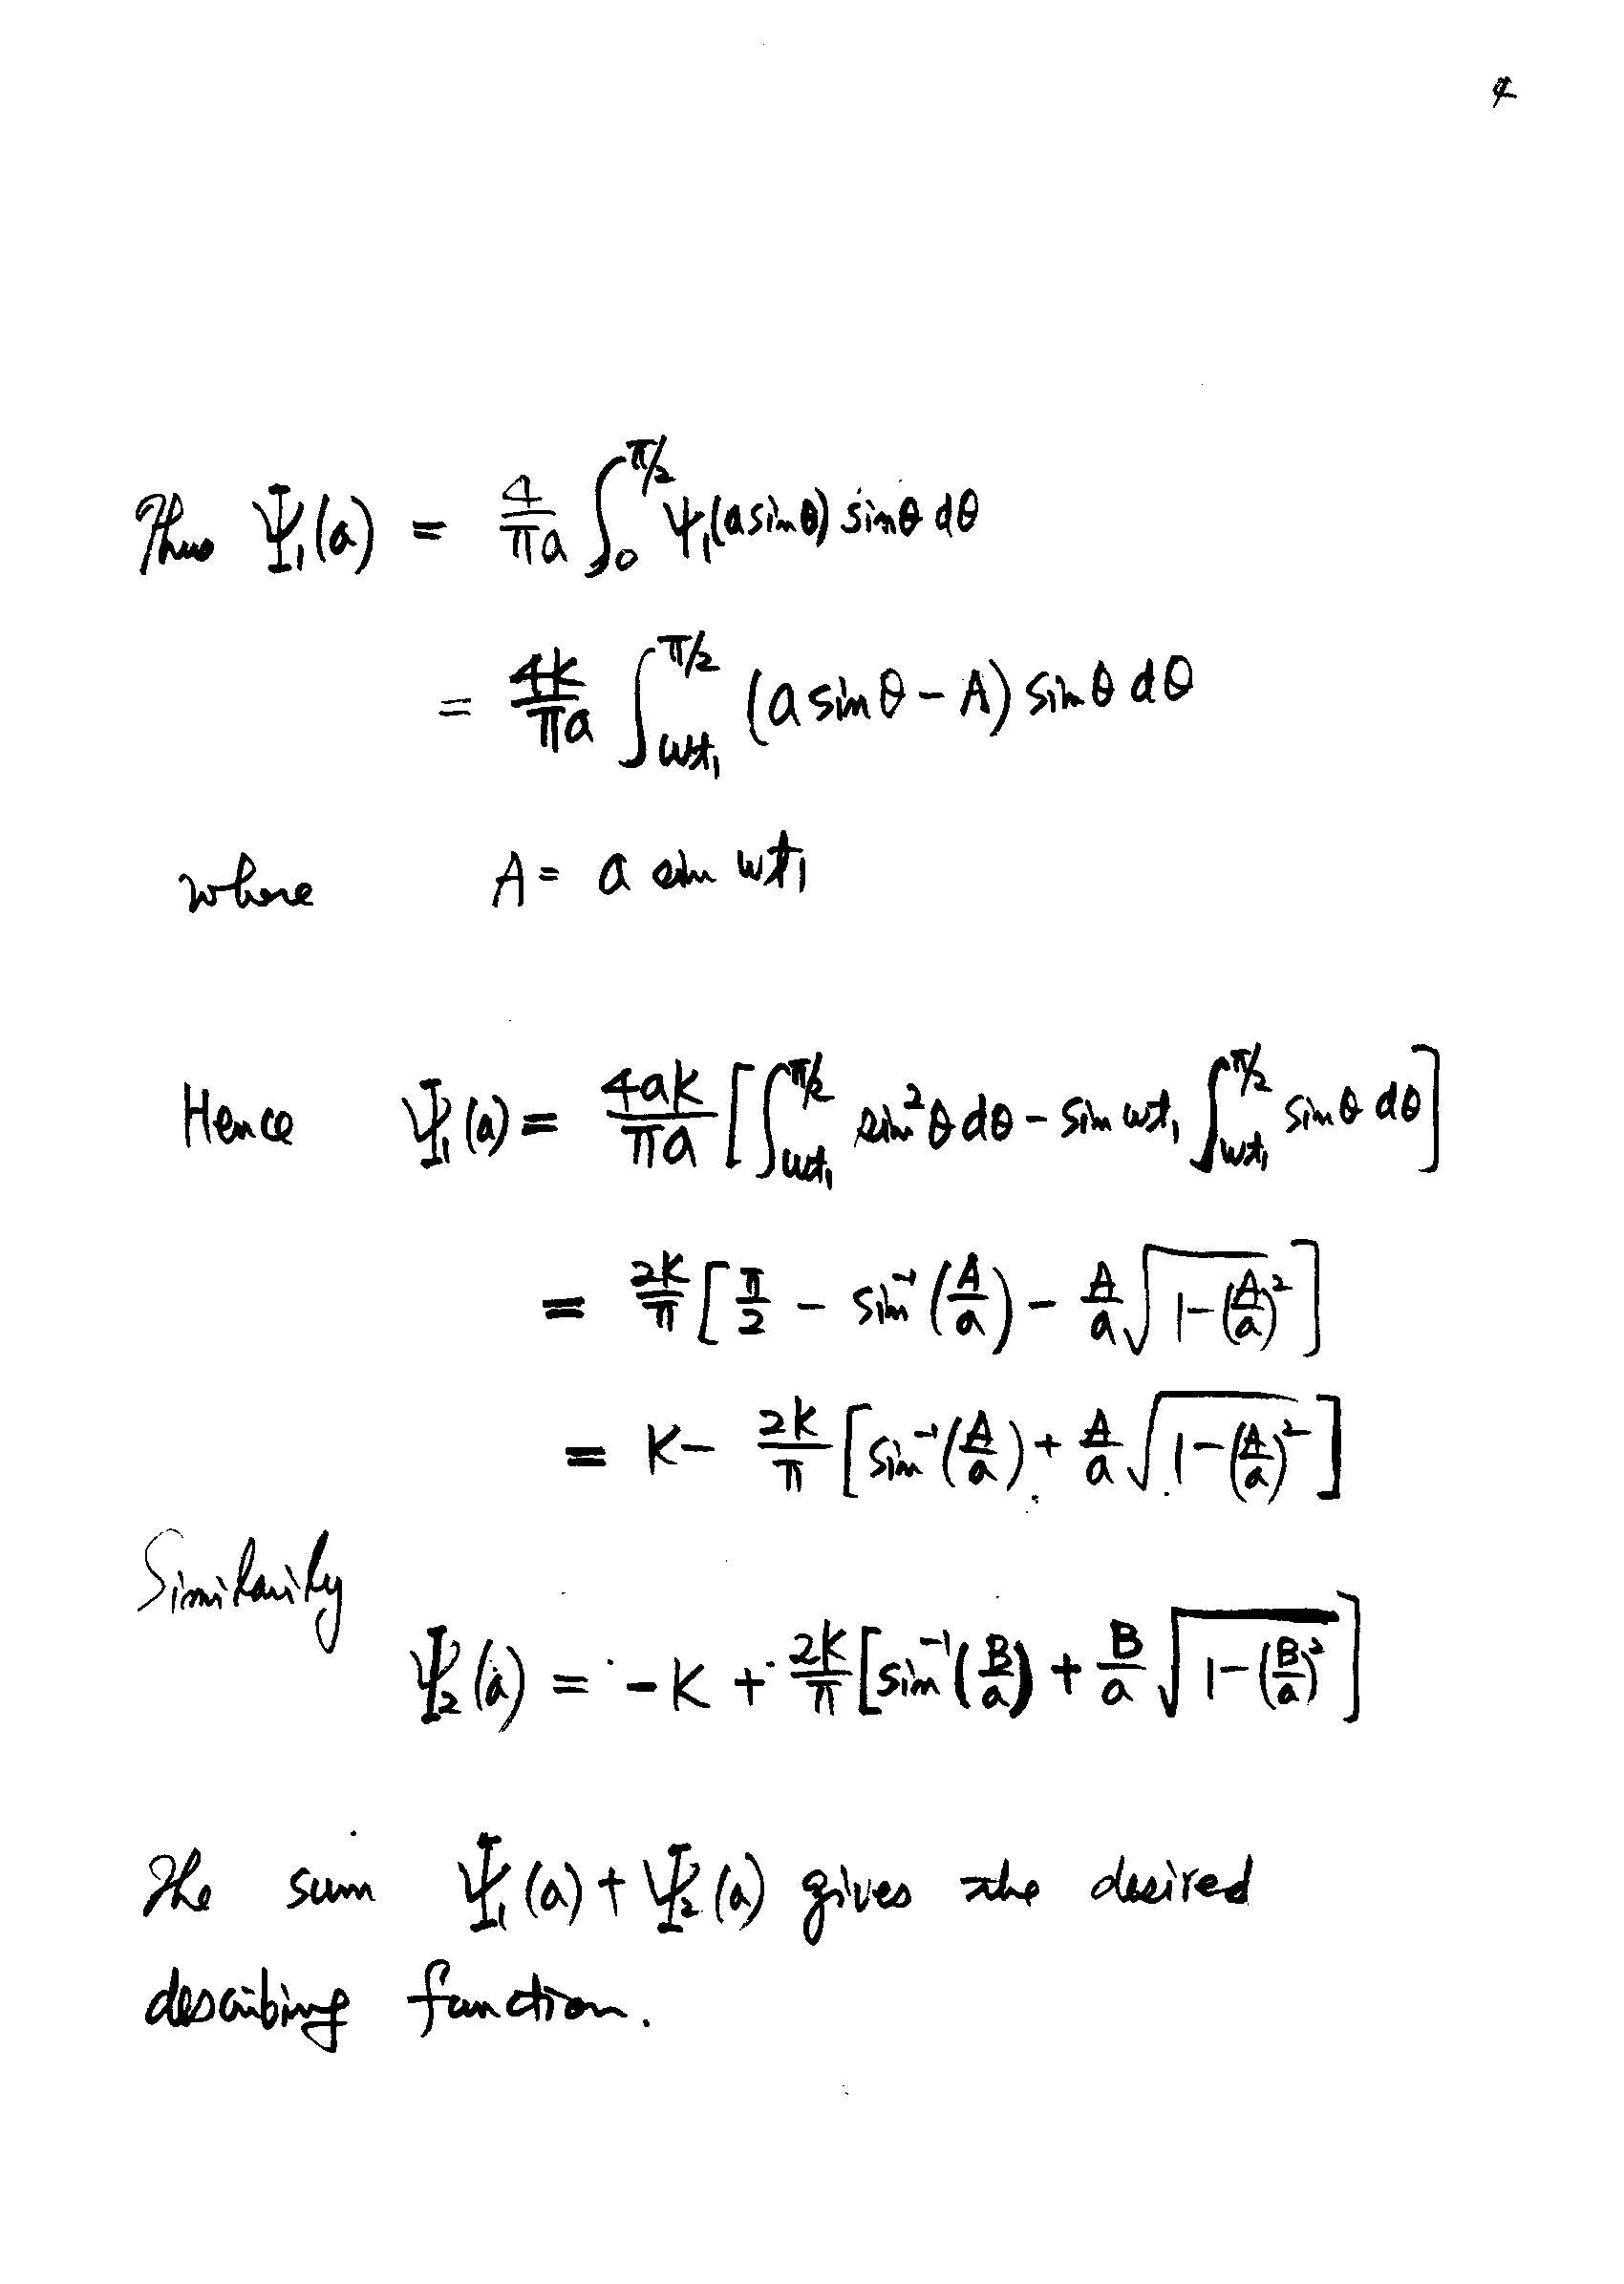 4
Thus Ψ₁(a) = 4/πa ∫₀^{π/2} ψ₁(a sinθ) sinθ dθ
= 4K/πa ∫_{ωt₁}^{π/2} (a sin θ − A) sin θ dθ
where A = a sin ωt₁
Hence Ψ₁(a) = 4aK/πa [∫_{ωt₁}^{π/2} sin²θ dθ − sin ωt₁ ∫_{ωt₁}^{π/2} sin θ dθ]
= 2K/π [π/2 − sin⁻¹(A/a) − A/a √(1−(A/a)²)]
= K − 2K/π [sin⁻¹(A/a) + A/a √(1−(A/a)²)]
Similarily
Ψ₂(a) = −K + 2K/π [sin⁻¹(B/a) + B/a √(1−(B/a)²)]
The sum Ψ₁(a) + Ψ₂(a) gives the desired
describing function.